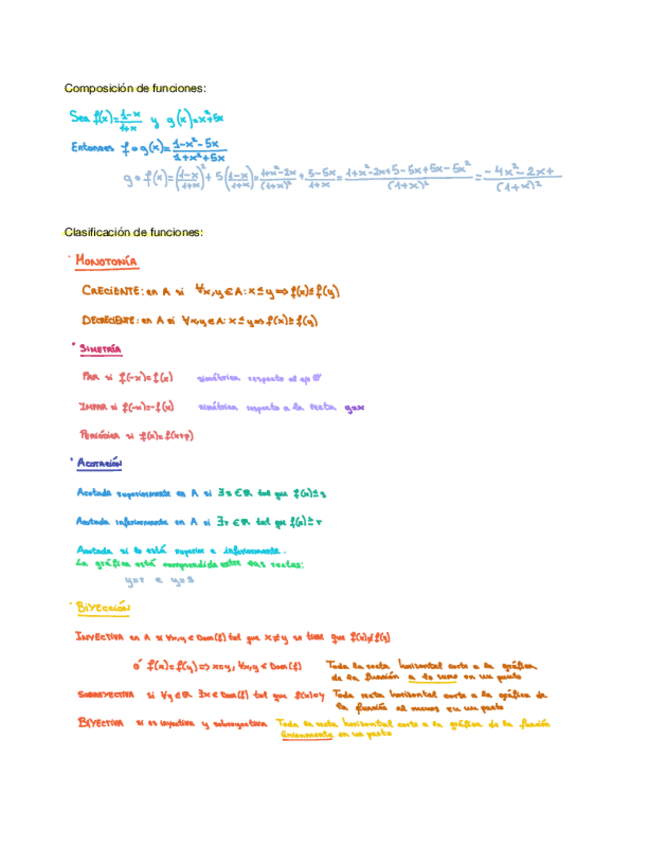 Composición de funciones:
Sea f(x)=(1-x)/(1+x) y g(x)=x²+5x
Entonces f∘g(x)=(1-x²-5x)/(1+x²+5x)
g∘f(x)=((1-x)/(1+x))²+5((1-x)/(1+x))=(1+x²-2x)/(1+x)²+(5-5x)/(1+x)=(1+x²-2x+5-5x+5x-5x²)/(1+x)²=(-4x²-2x+)/(1+x)²
Clasificación de funciones:
· MONOTONÍA
CRECIENTE: en A si ∀x,y∈A: x≤y⇒f(x)≤f(y)
DECRECIENTE: en A si ∀x,y∈A: x≤y⇒f(x)≥f(y)
· SIMETRÍA
PAR si f(-x)=f(x) simétrica respecto al eje OY
IMPAR si f(-x)=-f(x) simétrica respecto a la recta y=x
PERIÓDICA si f(x)=f(x+p)
· ACOTACIÓN
Acotada superiormente en A si ∃s∈ℝ tal que f(x)≤s
Acotada inferiormente en A si ∃r∈ℝ tal que f(x)≥r
Acotada si lo está superior e inferiormente.
La gráfica está comprendida entre las rectas:
y=r e y=s
· BIYECCIÓN
INYECTIVA en A si ∀x,y∈Dom(f) tal que x≠y se tiene que f(x)≠f(y)
ó f(x)=f(y)⇒x=y, ∀x,y∈Dom(f) Toda la recta horizontal corta a la gráfica
de la función a lo sumo en un punto
SOBREYECTIVA si ∀y∈ℝ ∃x∈Dom(f) tal que f(x)=y Toda recta horizontal corta a la gráfica de
la función al menos en un punto
BIYECTIVA si es inyectiva y sobreyectiva Toda la recta horizontal corta a la gráfica de la función
únicamente en un punto